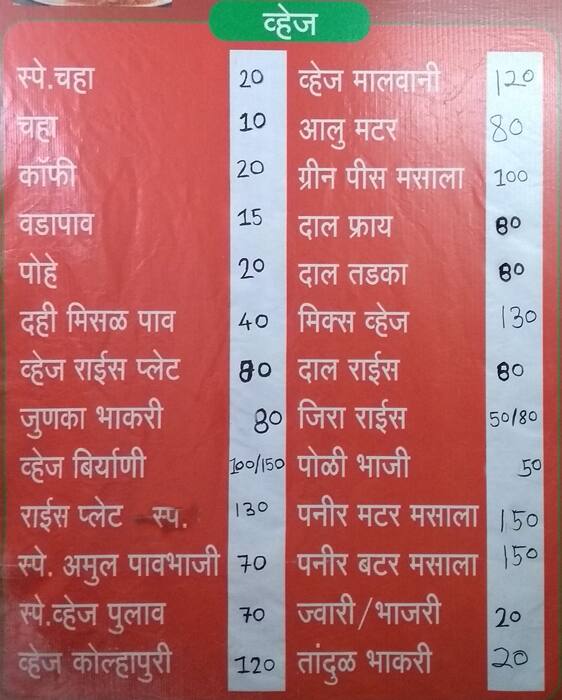 व्हेज
स्पे.चहा 20
चहा 10
कॉफी 20
वडापाव 15
पोहे 20
दही मिसळ पाव 40
व्हेज राईस प्लेट 80
जुणका भाकरी 80
व्हेज बिर्याणी 100/150
राईस प्लेट स्प. 130
स्पे. अमुल पावभाजी 70
स्पे.व्हेज पुलाव 70
व्हेज कोल्हापुरी 120
व्हेज मालवानी 120
आलु मटर 80
ग्रीन पीस मसाला 100
दाल फ्राय 80
दाल तडका 80
मिक्स व्हेज 130
दाल राईस 80
जिरा राईस 50/80
पोळी भाजी 50
पनीर मटर मसाला 150
पनीर बटर मसाला 150
ज्वारी/भाजरी 20
तांदुळ भाकरी 20